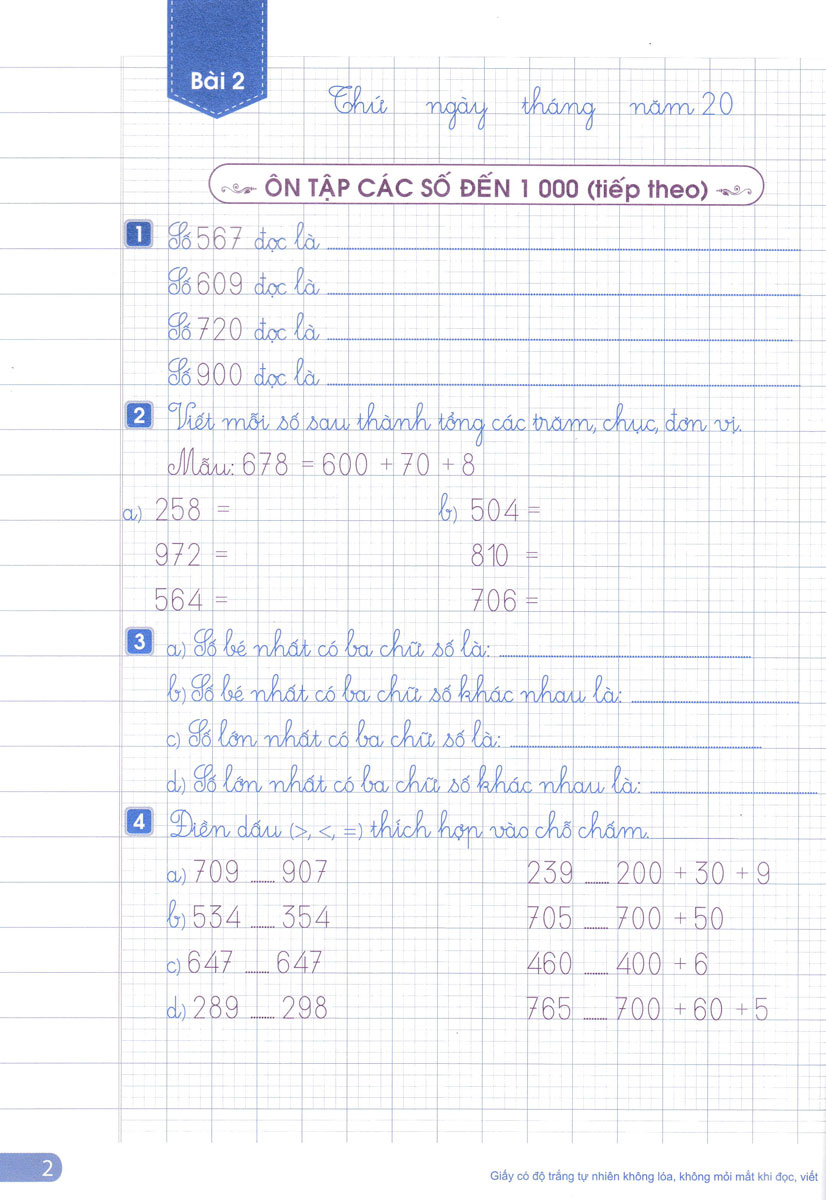 Bài 2
Thứ ngày tháng năm 20
ÔN TẬP CÁC SỐ ĐẾN 1 000 (tiếp theo)
1 Số 567 đọc là
Số 609 đọc là
Số 720 đọc là
Số 900 đọc là
2 Viết mỗi số sau thành tổng các trăm, chục, đơn vị.
Mẫu: 678 = 600 + 70 + 8
a) 258 = b) 504 =
972 = 810 =
564 = 706 =
3 a) Số bé nhất có ba chữ số là:
b) Số bé nhất có ba chữ số khác nhau là:
c) Số lớn nhất có ba chữ số là:
d) Số lớn nhất có ba chữ số khác nhau là:
4 Điền dấu (>, <, =) thích hợp vào chỗ chấm.
a) 709 ...... 907 239 ...... 200 + 30 + 9
b) 534 ...... 354 705 ...... 700 + 50
c) 647 ...... 647 460 ...... 400 + 6
d) 289 ...... 298 765 ...... 700 + 60 + 5
2
Giấy có độ trắng tự nhiên không lóa, không mỏi mắt khi đọc, viết